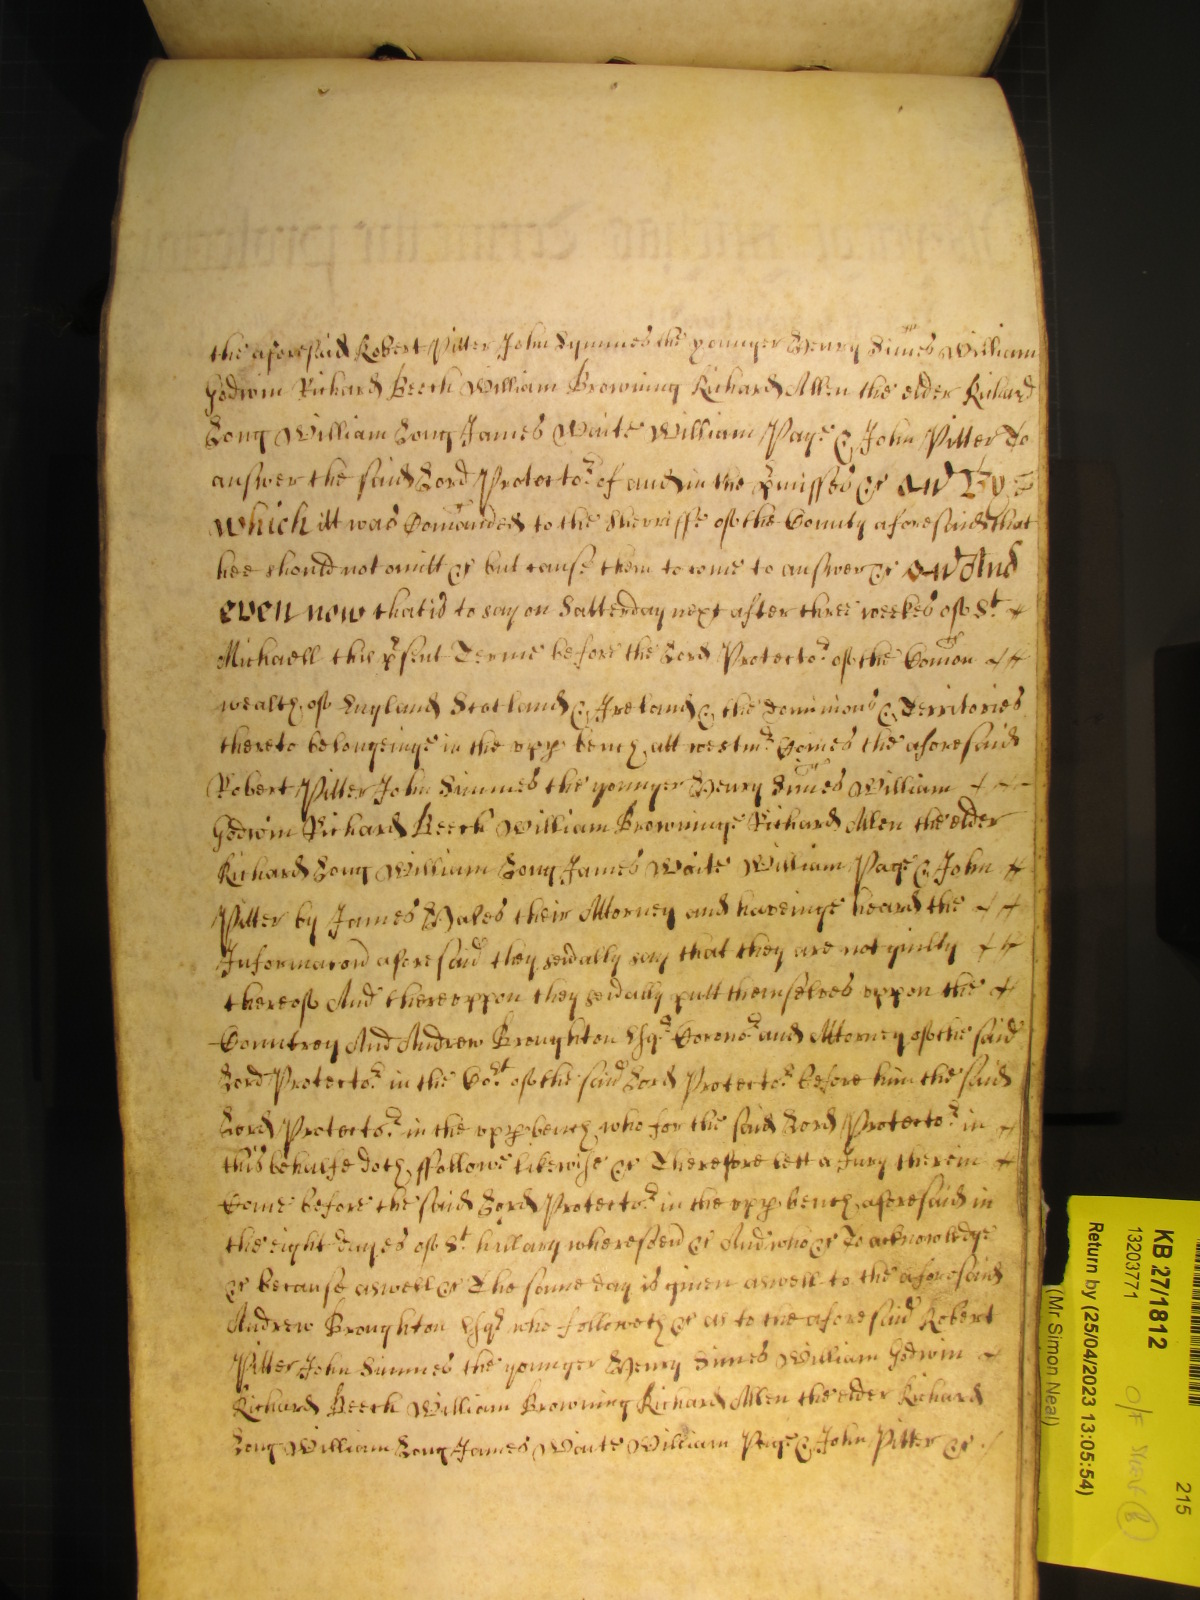 the aforesaid Robert Pitter John Symmes the younger Henry Simes William
Godwin Richard Beech William Browning Richard Allen the elder Richard
Long William Long James Waite William Page & John Pitter To
answer the said Lord Protector of and in the pmisses &c And By
which itt was Comanded to the Sherriffe of the County aforesaid that
hee should not omitt &c but cause them to come to answer &c And
even now that is to say on Satterday next after three weekes of St
Michaell this psent Terme before the Lord Protector of the Comon
wealth of England Scotland & Ireland & the Dominions & Territories
thereto belongeinge in the upp bench att westmr Comes the aforesaid
Robert Pitter John Simmes the younger Henry Simes William
Godwin Richard Beech William Browninge Richard Allen the elder
Richard Long William Long James Waite William Page & John
Pitter by James Hales their Attorney and haveinge heard the
Informacon aforesaid they sevally say that they are not guilty
thereof And thereuppon they sevally putt themselves uppon the
Countrey And Andrew Broughton Esqr Coronor and Attorney of the said
Lord Protector in the Cort of the said Lord Protector before him the said
Lord Protector in the upp bench who for the said Lord Protector in
this behalfe doth ffollowe likewise &c Therefore lett a Jury therein
Come before the said Lord Protector in the upp bench aforesaid in
the eight dayes of St hillary wheresoevr &c And who &c To acknowledge
&c because aswell &c The same day is given aswell to the aforesaid
Andrew Broughton Esqr who followeth &c as to the aforesaid Robert
Pitter John Simmes the younger Henry Simes William Godwin
Richard Beech William Browning Richard Allen the elder Richard
Long William Long James Waite William Page & John Pitter &c
KB 27/1812
215
13203771
O/F Shelf (B)
Return by (25/04/2023 13:05:54)
(Mr Simon Neal)